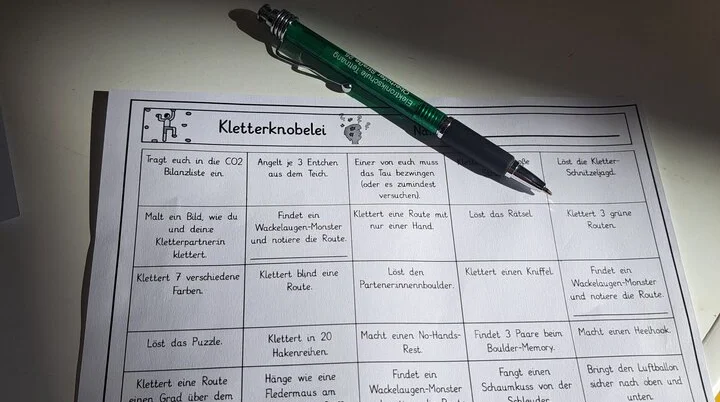 Elektronikschule Tettnang
Kletterknobelei
Na
Tragt euch in die CO2
Bilanzliste ein.
Angelt je 3 Entchen
aus dem Teich.
Einer von euch muss
das Tau bezwingen
(oder es zumindest
versuchen).
Löst die Kletter-
Schnitzeljagd.
Malt ein Bild, wie du
und deine
Kletterpartner:in
klettert.
Findet ein
Wackelaugen-Monster
und notiere die Route.
Klettert eine Route mit
nur einer Hand.
Löst das Rätsel.
Klettert 3 grüne
Routen.
Klettert 7 verschiedene
Farben.
Klettert blind eine
Route.
Löst den
Partener:innenboulder.
Klettert einen Kniffel.
Findet ein
Wackelaugen-Monster
und notiere die Route.
Löst das Puzzle.
Klettert in 20
Hakenreihen.
Macht einen No-Hands-
Rest.
Findet 3 Paare beim
Boulder-Memory.
Macht einen Heelhook.
Klettert eine Route
einen Grad über dem
Hänge wie eine
Fledermaus am
Findet ein
Wackelaugen-Monster
Fangt einen
Schaumkuss von der
Bringt den Luftballon
sicher nach oben und
unten.